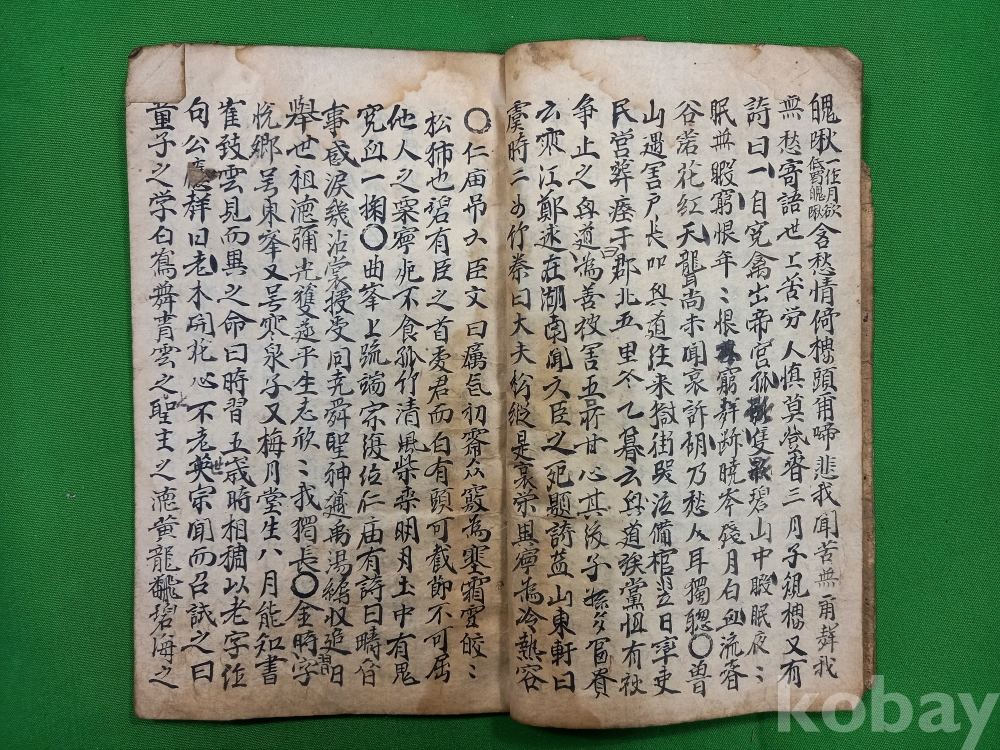 魄啾一作月欲低蜀魄啾含愁情倚樓頭甭啼悲我聞苦無甭聲我
無愁寄語世上苦労人慎莫登春三月子規樓又有
詩曰一自寃禽出帝宮孤隻影碧山中暇眠夜〻
眠無暇窮恨年〻恨無窮聲斷曉岑殘月白血流春
谷落花紅天聾尚未聞哀訴胡乃愁人耳獨聰〇魯
山遇害戶長叩與道徃来獄街哭泣備棺翌日率吏
民營葬瘞于郡北五里冬乙暮云與道族黨恒有秋
争止之與道為善被害吾所甘心其後子孫多富貴
云寒江鄭逑在湖南聞大臣之死題詩益山東軒曰
虞時二女竹拳曰大夫松縱是哀榮與寧為冷熱容
〇仁庙吊六臣文曰厲气初霽众竅為塞霜雪皎〻
松獨也碧有臣之首愛君而白有頭可截節不可屈
他人之粟寧死不食孤竹清風柴桑明月土中有鬼
寃血一掬〇曲峯上疏端宗復位仁庙有詩曰疇昔
事感淚幾沾裳授受同堯舜聖神邁禹湯編収追日
舉世祖德彌光獲遂平生志欣〻我獨長〇金時字
悅卿号東峯又号寒泉子又梅月堂生八月能知書
崔致雲見而異之命曰時習五歲時相稠以老字作
句公應聲曰老木開花心不老英宗聞而召試之曰
童子之学白鶴舞青雲之聖主之德黃龍飜碧海之
kobay